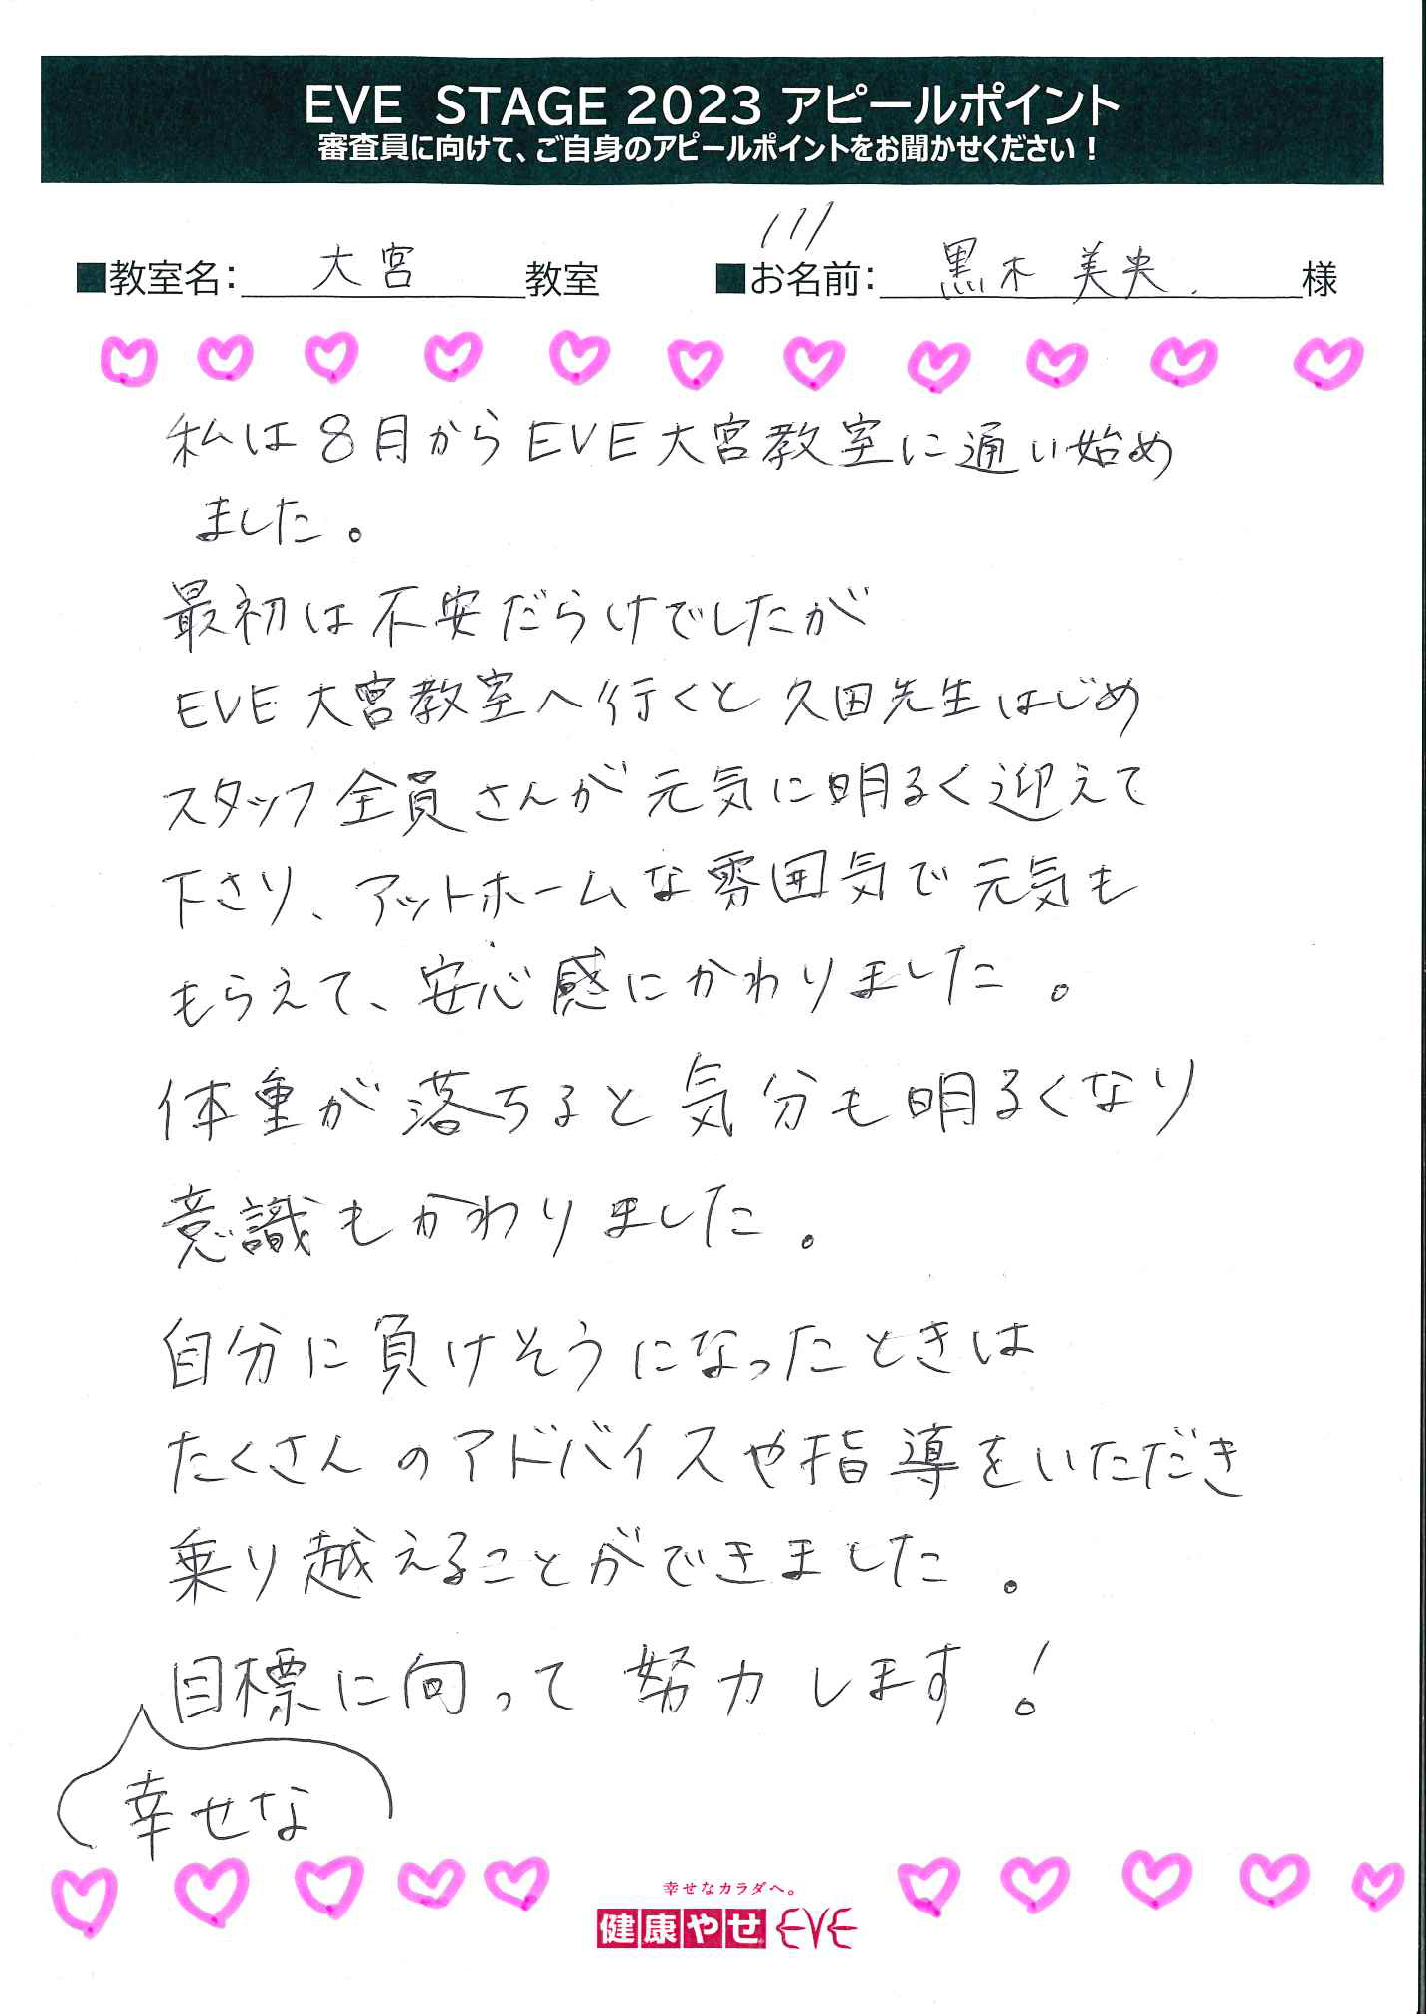 EVE STAGE 2023 アピールポイント
審査員に向けて、ご自身のアピールポイントをお聞かせください！
111
■教室名： 大宮 教室 ■お名前： 黒木 美央. 様
私は8月からEVE大宮教室に通い始め
ました。
最初は不安だらけでしたが
EVE大宮教室へ行くと久田先生はじめ
スタッフ全員さんが元気に明るく迎えて
下さり、アットホームな雰囲気で元気も
もらえて、安心感にかわりました。
体重が落ちると気分も明るくなり
意識もかわりました。
自分に負けそうになったときは
たくさんのアドバイスや指導をいただき
乗り越えることができました。
目標に向って努力します！
幸せな
幸せなカラダへ。
健康やせ EVE